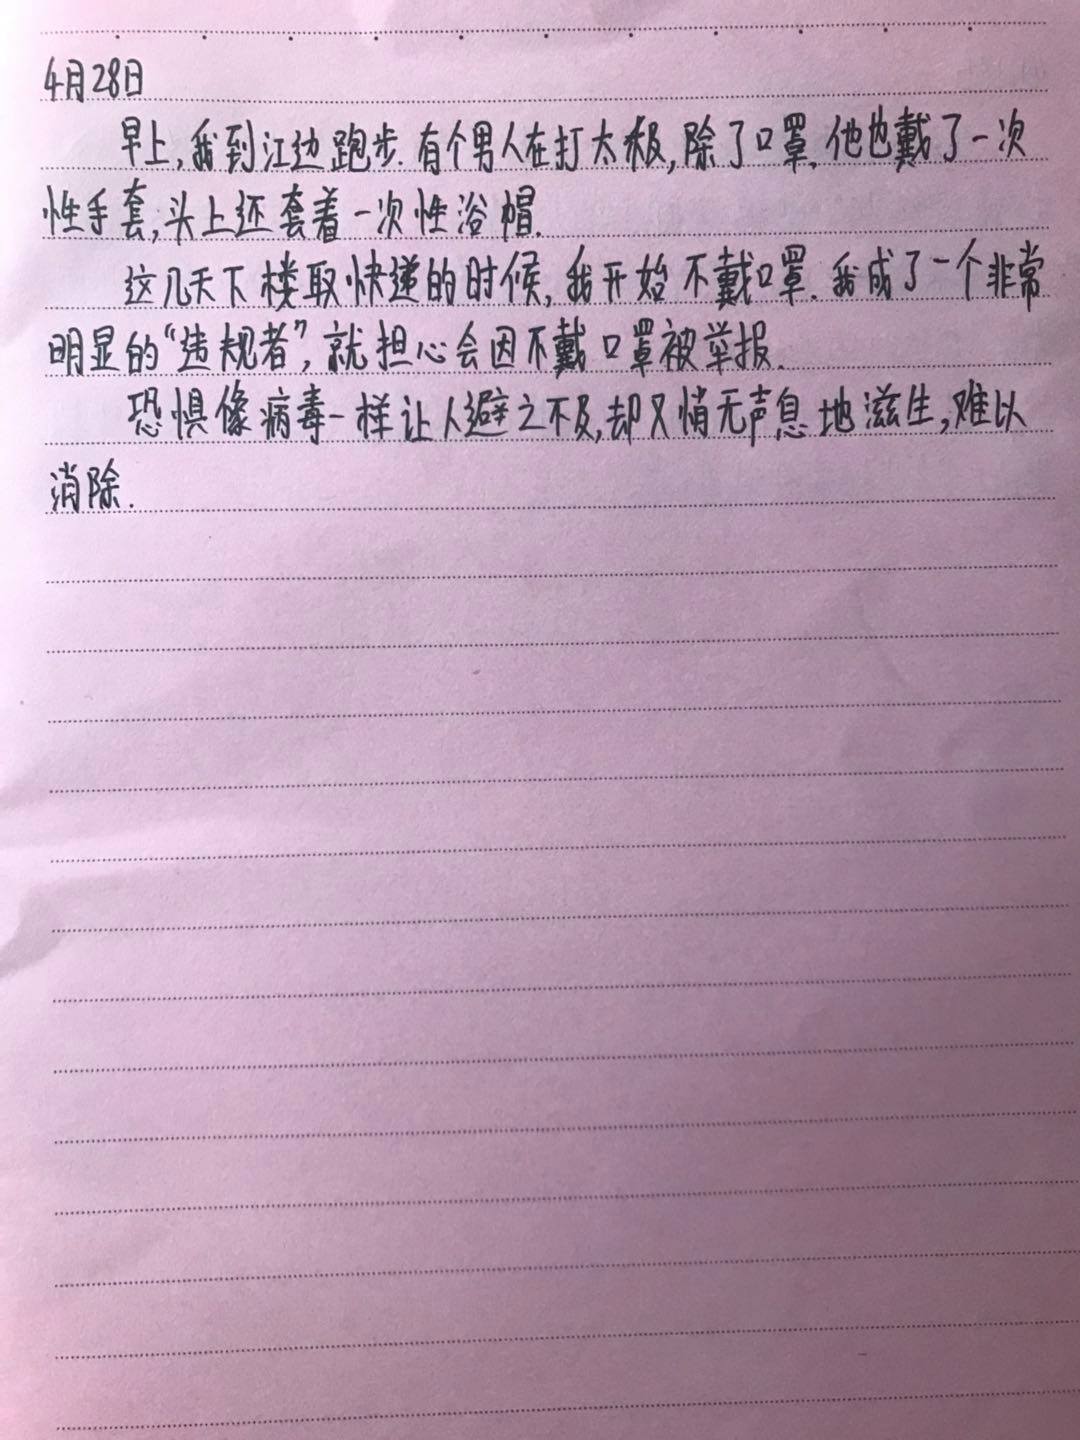 4月28日
早上,我到江边跑步.有个男人在打太极,除了口罩,他也戴了一次
性手套,头上还套着一次性浴帽.
这几天下楼取快递的时候,我开始不戴口罩.我成了一个非常
明显的“违规者”,就担心会因不戴口罩被举报.
恐惧像病毒一样让人避之不及,却又悄无声息地滋生,难以
消除.